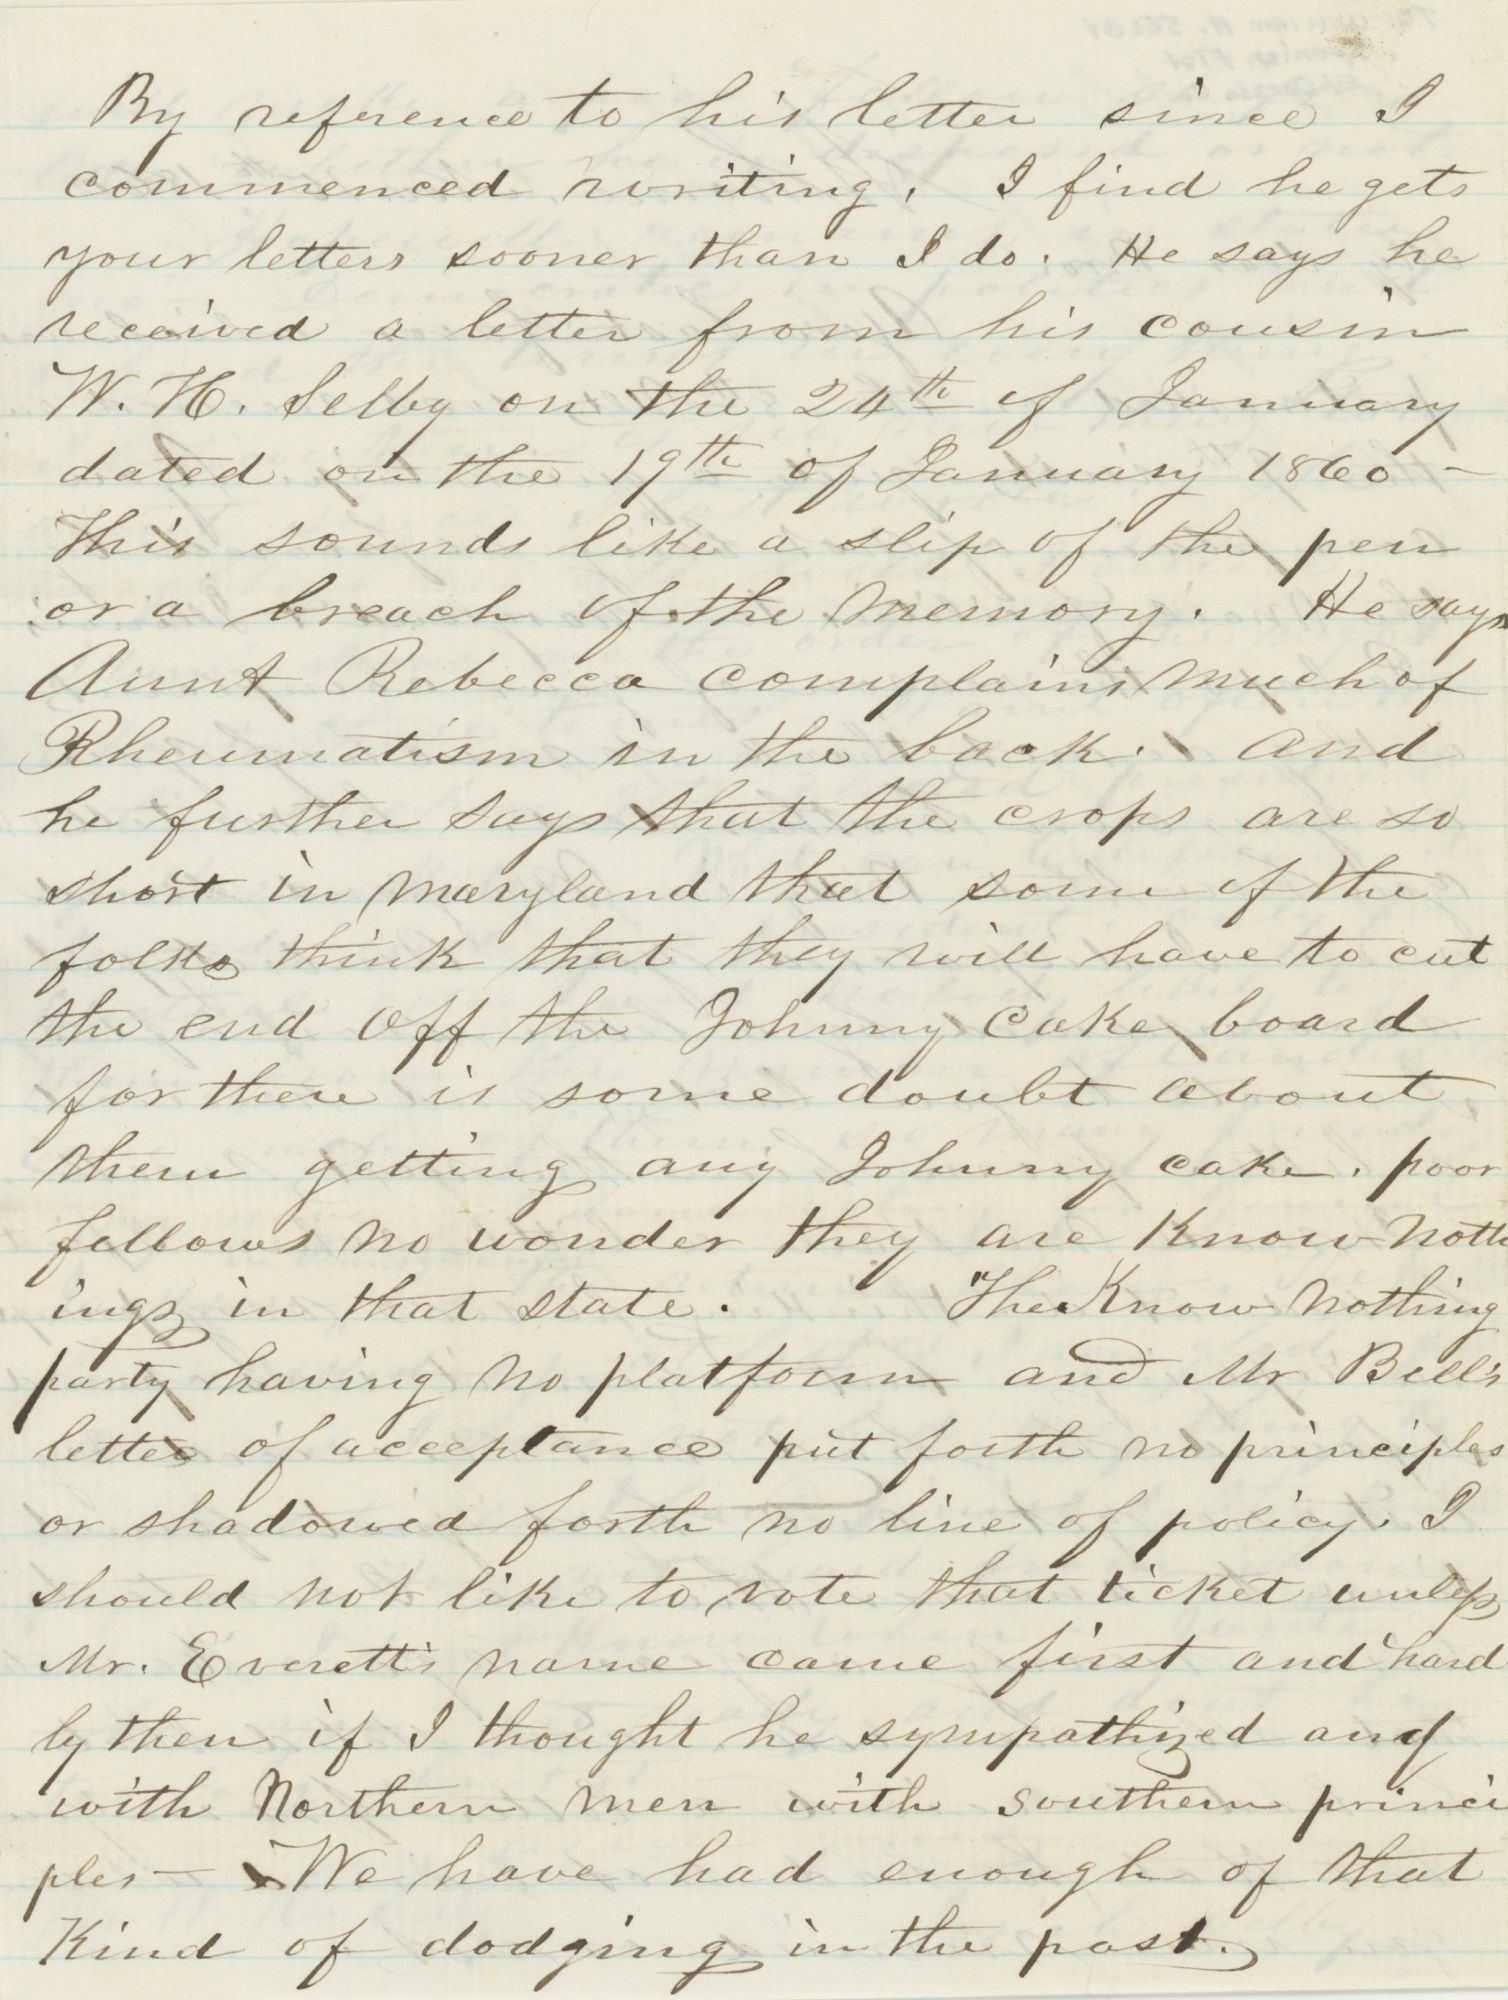 By reference to his letter since I
commenced writing, I find he gets
your letters sooner than I do. He says he
received a letter from his cousin
W. H. Selby on the 24th of January
dated on the 19th of January 1860 –
This sounds like a slip of the pen
or a breach of the memory. He says
Aunt Rebecca complains much of
Rheumatism in the back. and
he further says that the crops are so
short in Maryland that some of the
folks think that they will have to cut
the end off the Johnny cake board
for there is some doubt about
them getting any Johnny cake. poor
fellows no wonder they are Know-Noth
ings in that state. The Know Nothing
party having no platform and Mr Bell's
letter of acceptance put forth no principles
or shadowed forth no line of policy. I
should not like to vote that ticket unless
Mr. Everett's name came first and hard
ly then if I thought he sympathized any
with Northern men with southern princi
ples – We have had enough of that
Kind of dodging in the past.